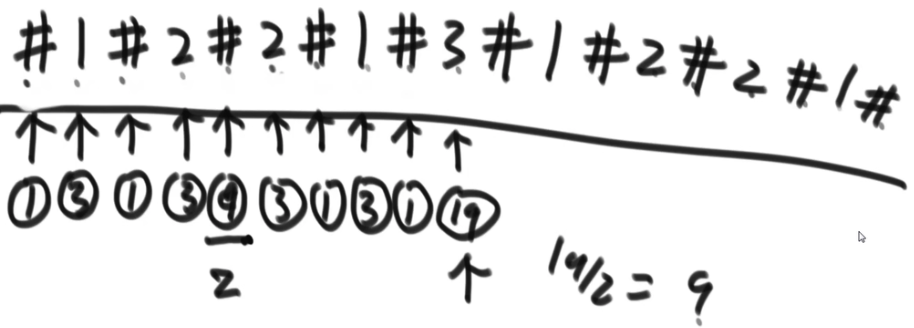 # 1 # 2 # 2 # 1 # 3 # 1 # 2 # 2 # 1 #
↑ ↑ ↑ ↑ ↑ ↑ ↑ ↑ ↑ ↑
① ③ ① ③ ⑨ ③ ① ③ ① ⑲
2 ↑ 19/2 = 9